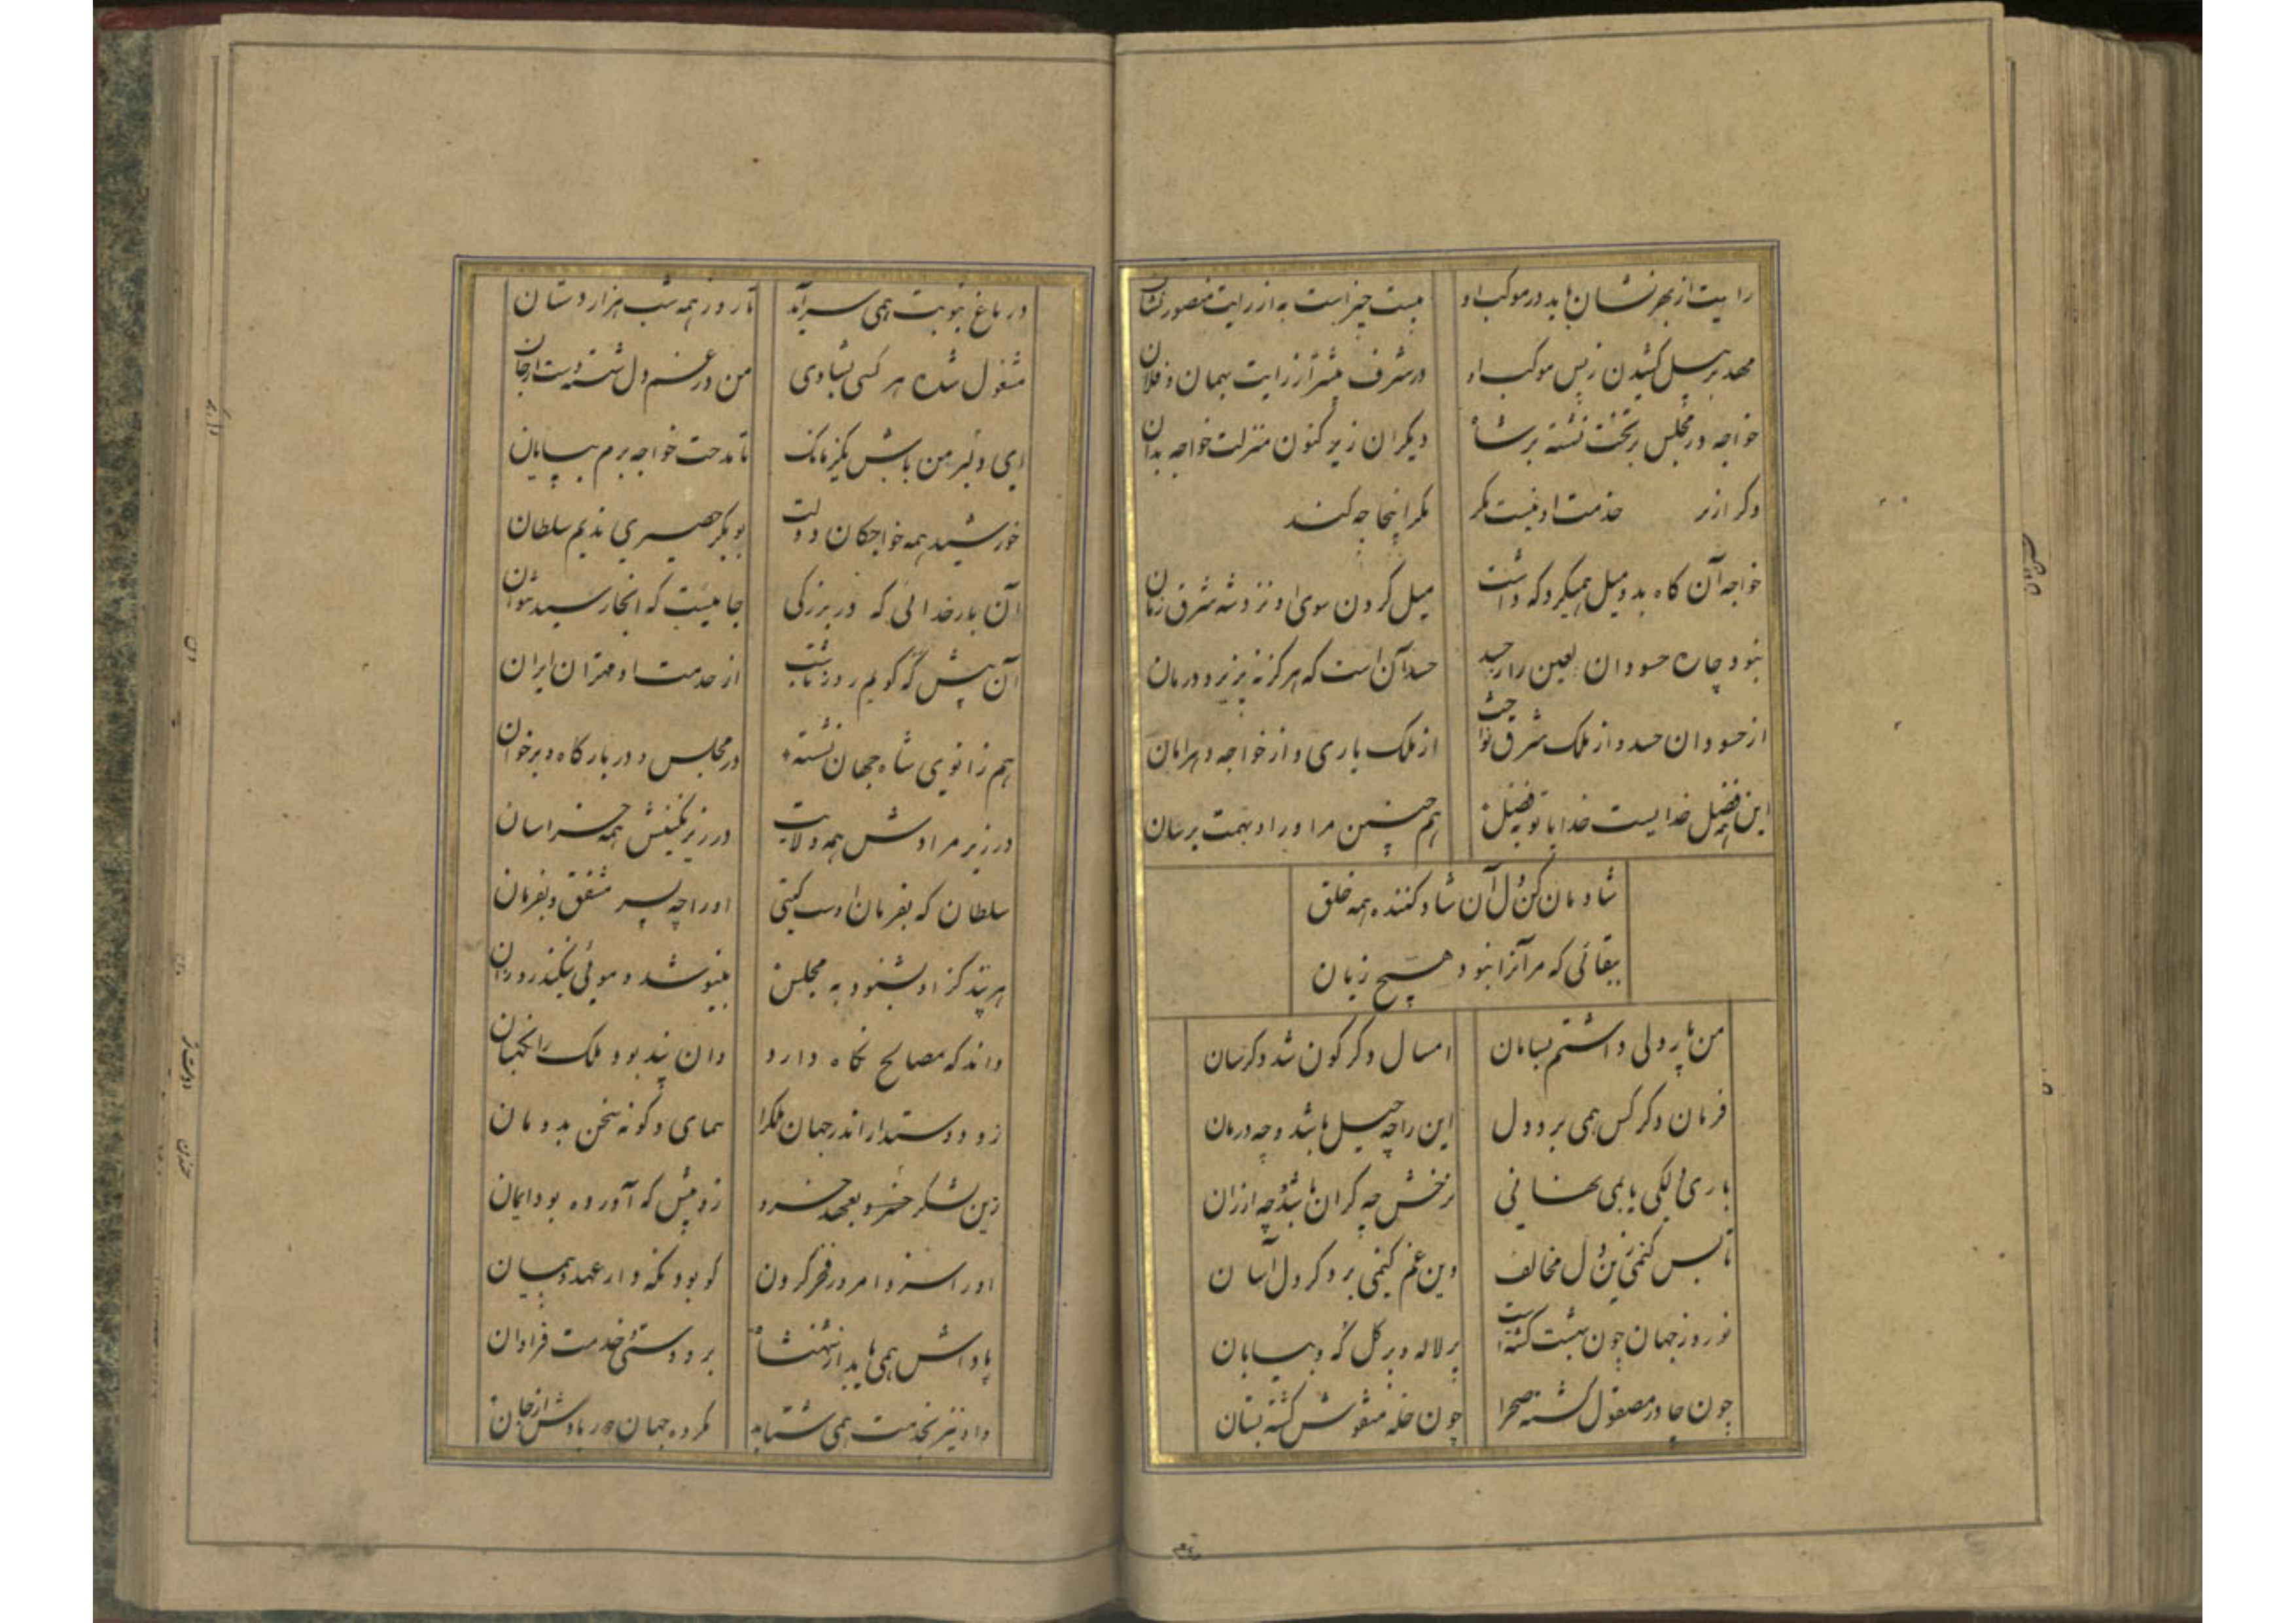 رایت از بهر نشان باید در موکب او    هست چیز است به از رایت منصور نشان
مهد بر پیل کشیدن ز پس موکب او    در شرف بیشتر از رایت بهمان و فلان
خواجه در مجلس بر تخت نشسته بر شاه    دیگران زیر کنون منزلت خواجه بدان
دگر از بر خدمت او نیست مگر    مگر اینجا چه کند
خواجه آن گاه بدو میل همیکرد که داشت    میل کردن سوی او نزد شه شرق زمان
نبود چاره حسودان لعین را ز حسد    حسد آن است که هرگز نپذیرد درمان
از حسودان حسد و از ملک شرق نواخت    از ملک باری و از خواجه دهرامان
این همه فضل خدایست خدایا تو بفضل    هم چنین مر او را و بهمت برسان
شادمان کن دل آن شاد کننده همه خلق
ببقائی که مر آنرا نبود هیچ زیان
من پار دلی داشتم بسامان    امسال دگرگون شد و دگرسان
فرمان دگر کس همی برد دل    این را چه حیل باشد و چه درمان
باری دلکی یابمی نهانی    نرخش چه گران باشد و چه ارزان
تا بس کنمی زین دل مخالف    وین غم کنمی بر دگر دل آسان
نوروز جهان چون بهشت گشته است    پر لاله و پر گل که و بیابان
چون چادر مصقول گشته صحرا    چون حله منقوش گشته بستان
در باغ بنوبت همی سراید    تا روز همه شب هزار دستان
مشغول شده هر کسی بشادی    من در غم دل شسته دست از جان
ای دلبر من باش یکزمانک    تا مدحت خواجه برم بپایان
خورشید همه خواجگان دولت    بوبکر حصیری ندیم سلطان
آن بار خدائی که در بزرگی    جائیست که انجا رسید نتوان
آن پیش که گویم روز تا شب    از خدمت او مهتران ایران
هم زانوی شاه جهان نشسته    در مجلس و در بارگاه و بر خوان
در زیر مرادش همه ولایت    در زیر نگینش همه خراسان
سلطان که بفرمان اوست گیتی    او را چه پسر مشفق و بفرمان
هر پند کز او بشنود به مجلس    بنیوشد و موئی بنگذرد زان
داند که مصالح نگاه دارد    وان پند بود ملک را نگهبان
زو دوستدار اندر جهان ملکرا    بنمای دگونه سخن بدو مان
زین لشکر خسرو بعهد خسرو    زو پیش که آورده بود ایمان
او را سزد امروز فخر کردن    کو بود نگه دار عهد و پیمان
پاداش همی یابد از شهنشاه    بر دوستی و خدمت فراوان
و او نیز بخدمت همی شتابد    کرده جهان در یادش از جان